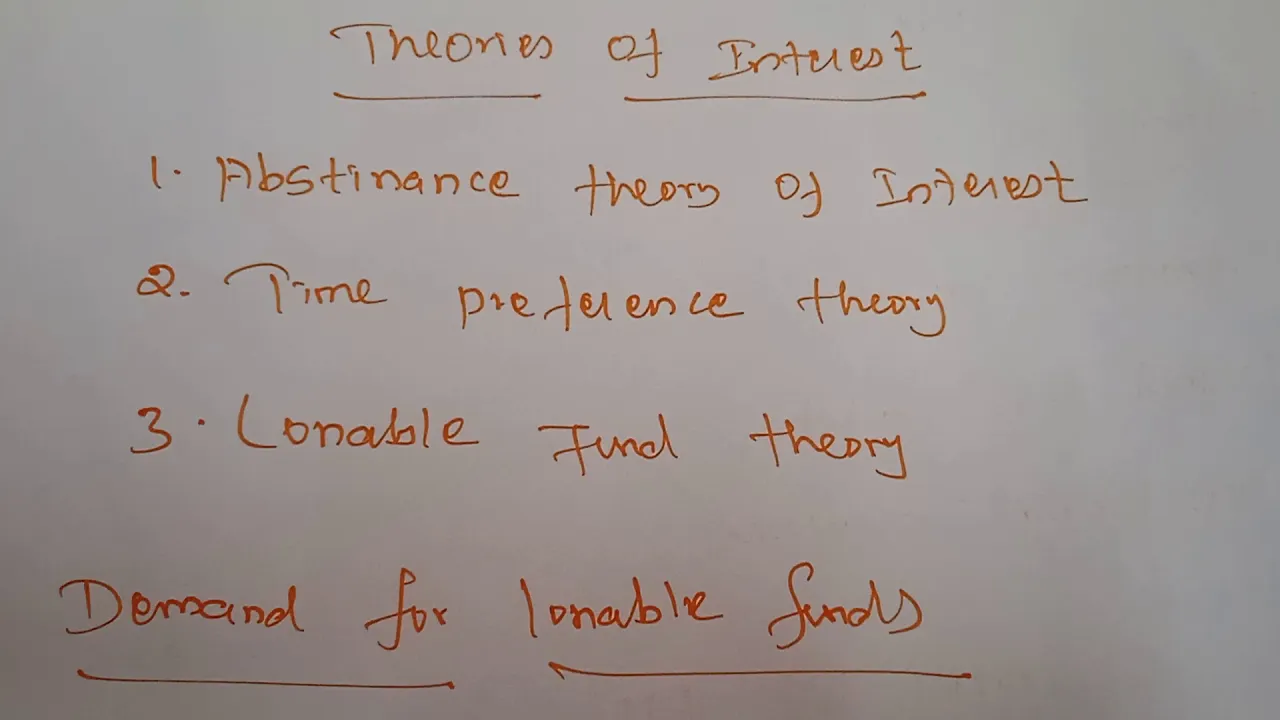 Theories of Interest
1. Abstinance theory of Interest
2. Time preference theory
3. Lonable Fund theory
Demand for lonable funds